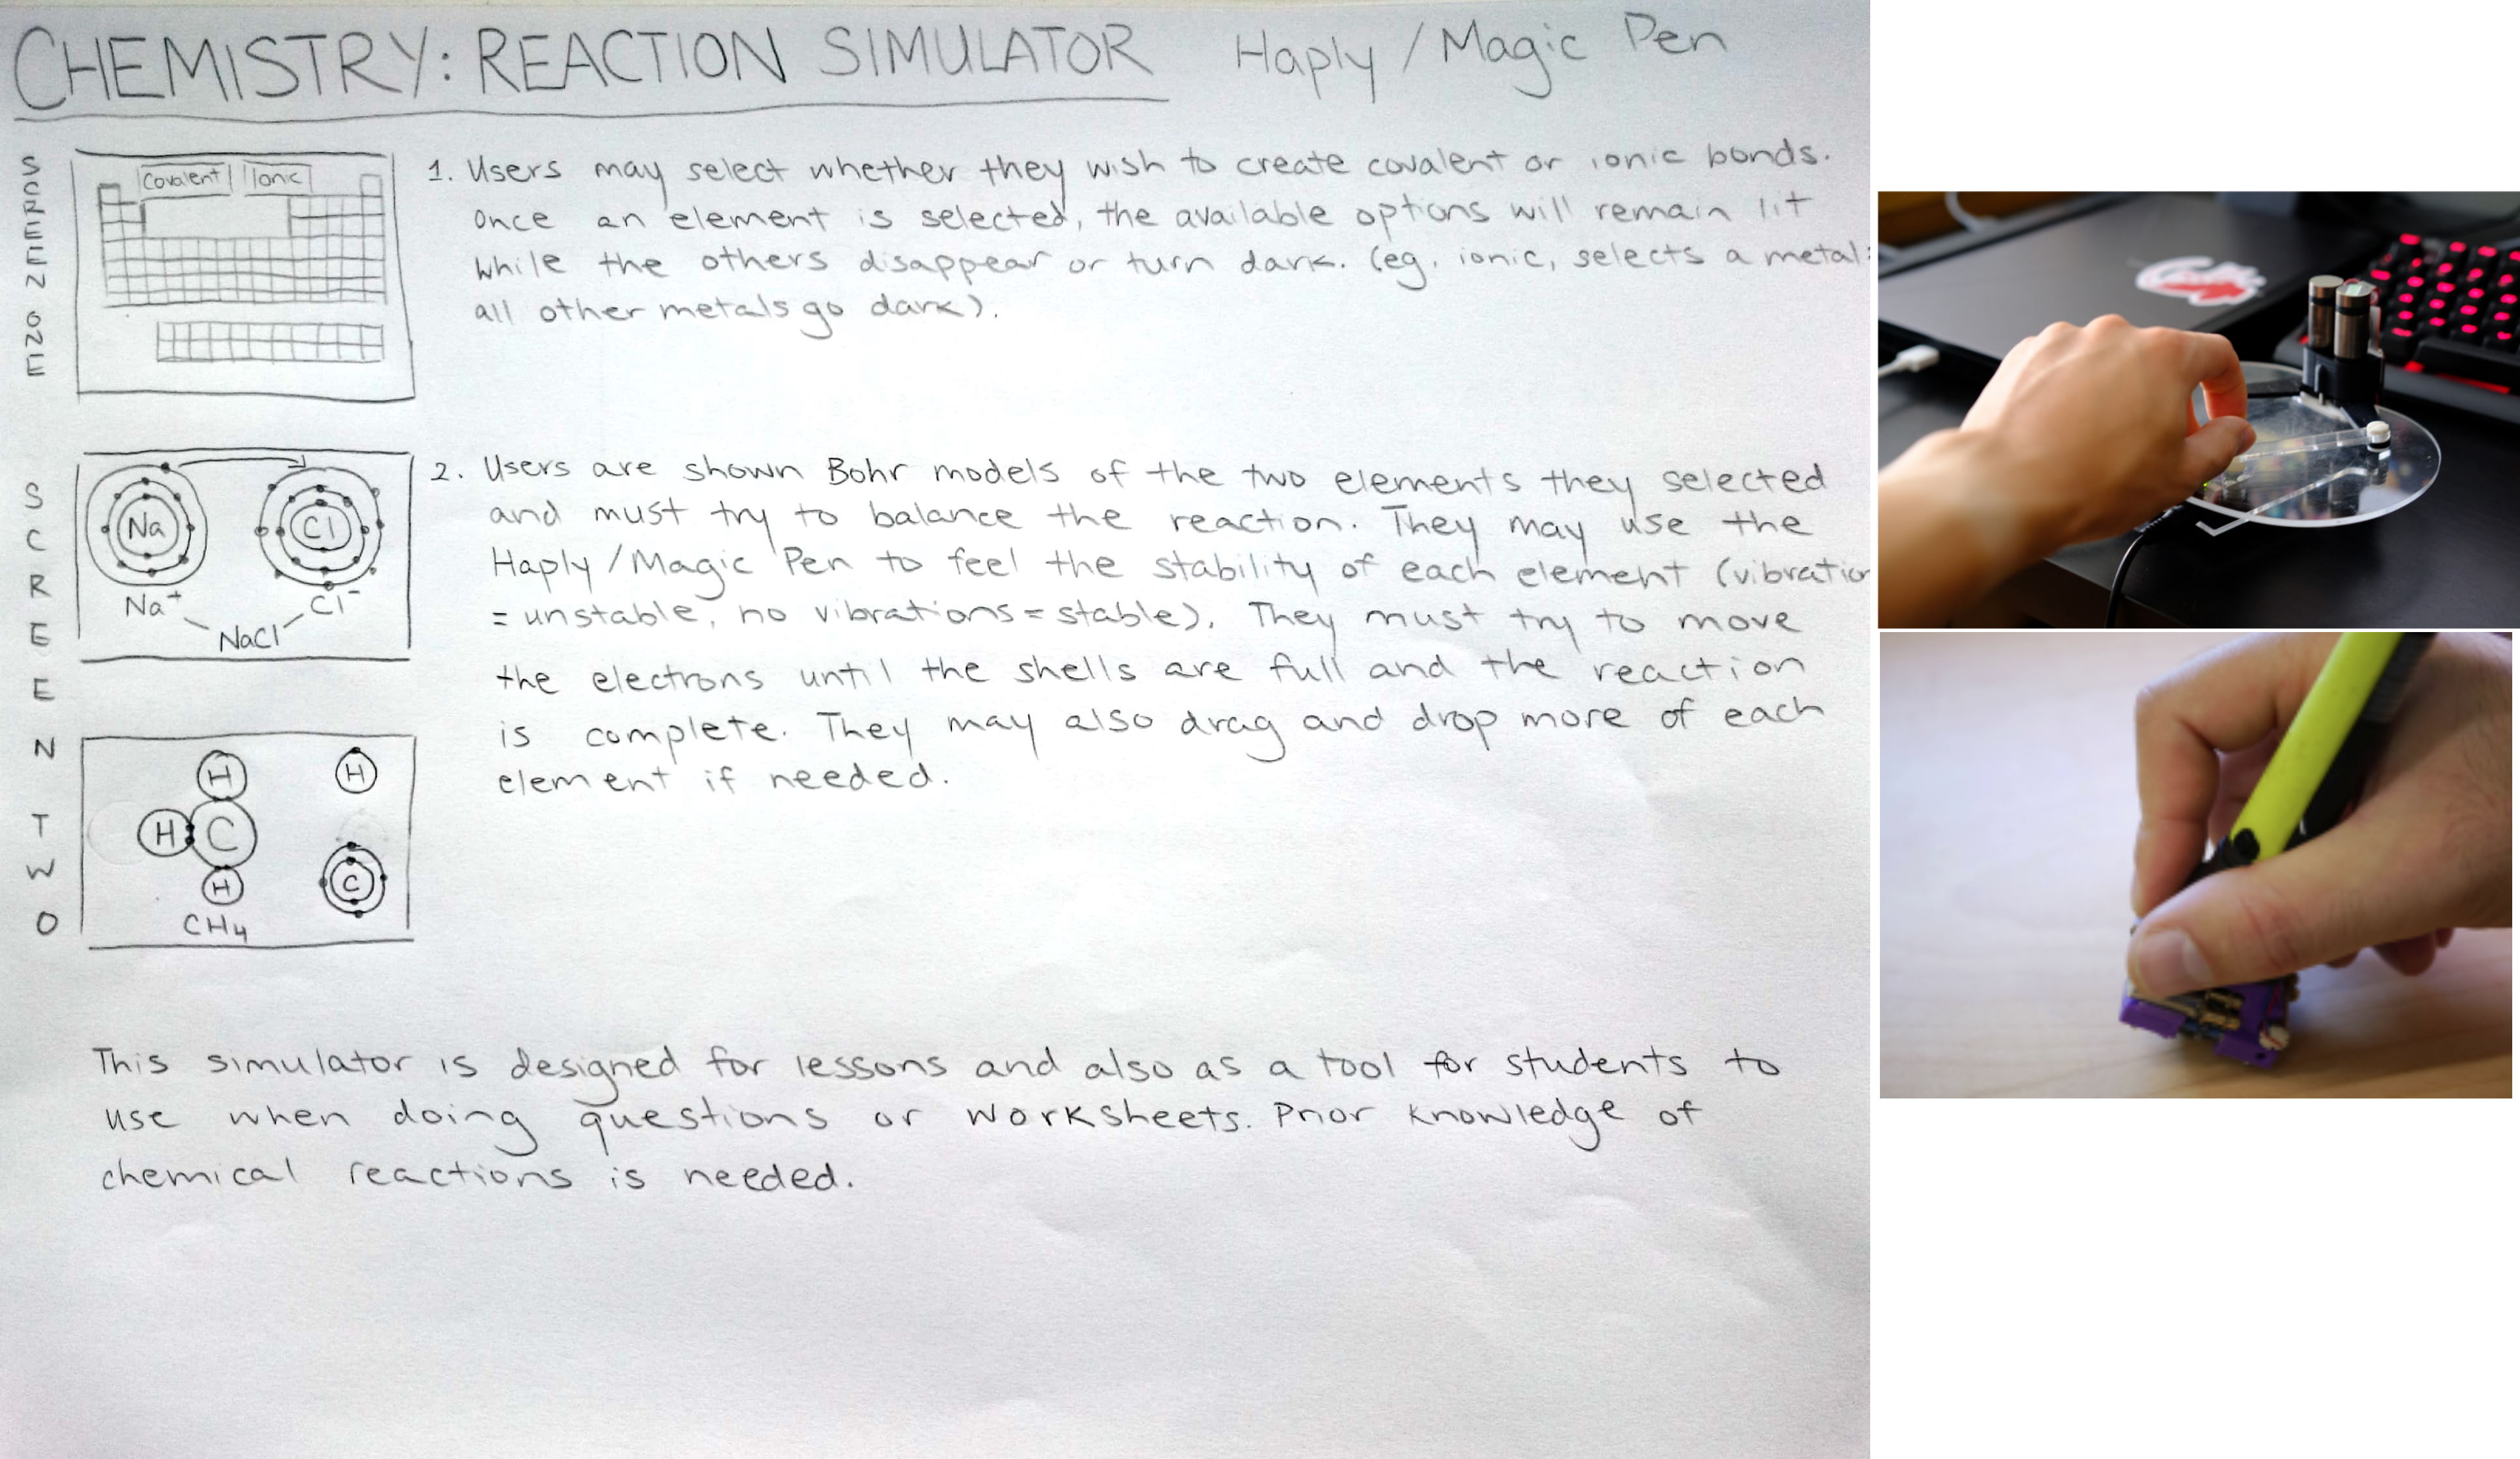 CHEMISTRY: REACTION SIMULATOR Haply / Magic Pen
SCREEN ONE
Covalent Ionic
1. Users may select whether they wish to create covalent or ionic bonds.
Once an element is selected, the available options will remain lit
while the others disappear or turn dark. (eg. ionic, selects a metal:
all other metals go dark).
SCREEN TWO
Na Cl
Na+ Cl-
NaCl
2. Users are shown Bohr models of the two elements they selected
and must try to balance the reaction. They may use the
Haply / Magic Pen to feel the stability of each element (vibration
= unstable, no vibrations = stable). They must try to move
the electrons until the shells are full and the reaction
is complete. They may also drag and drop more of each
element if needed.
H H
H C
H C
CH4
This simulator is designed for lessons and also as a tool for students to
use when doing questions or worksheets. Prior knowledge of
chemical reactions is needed.